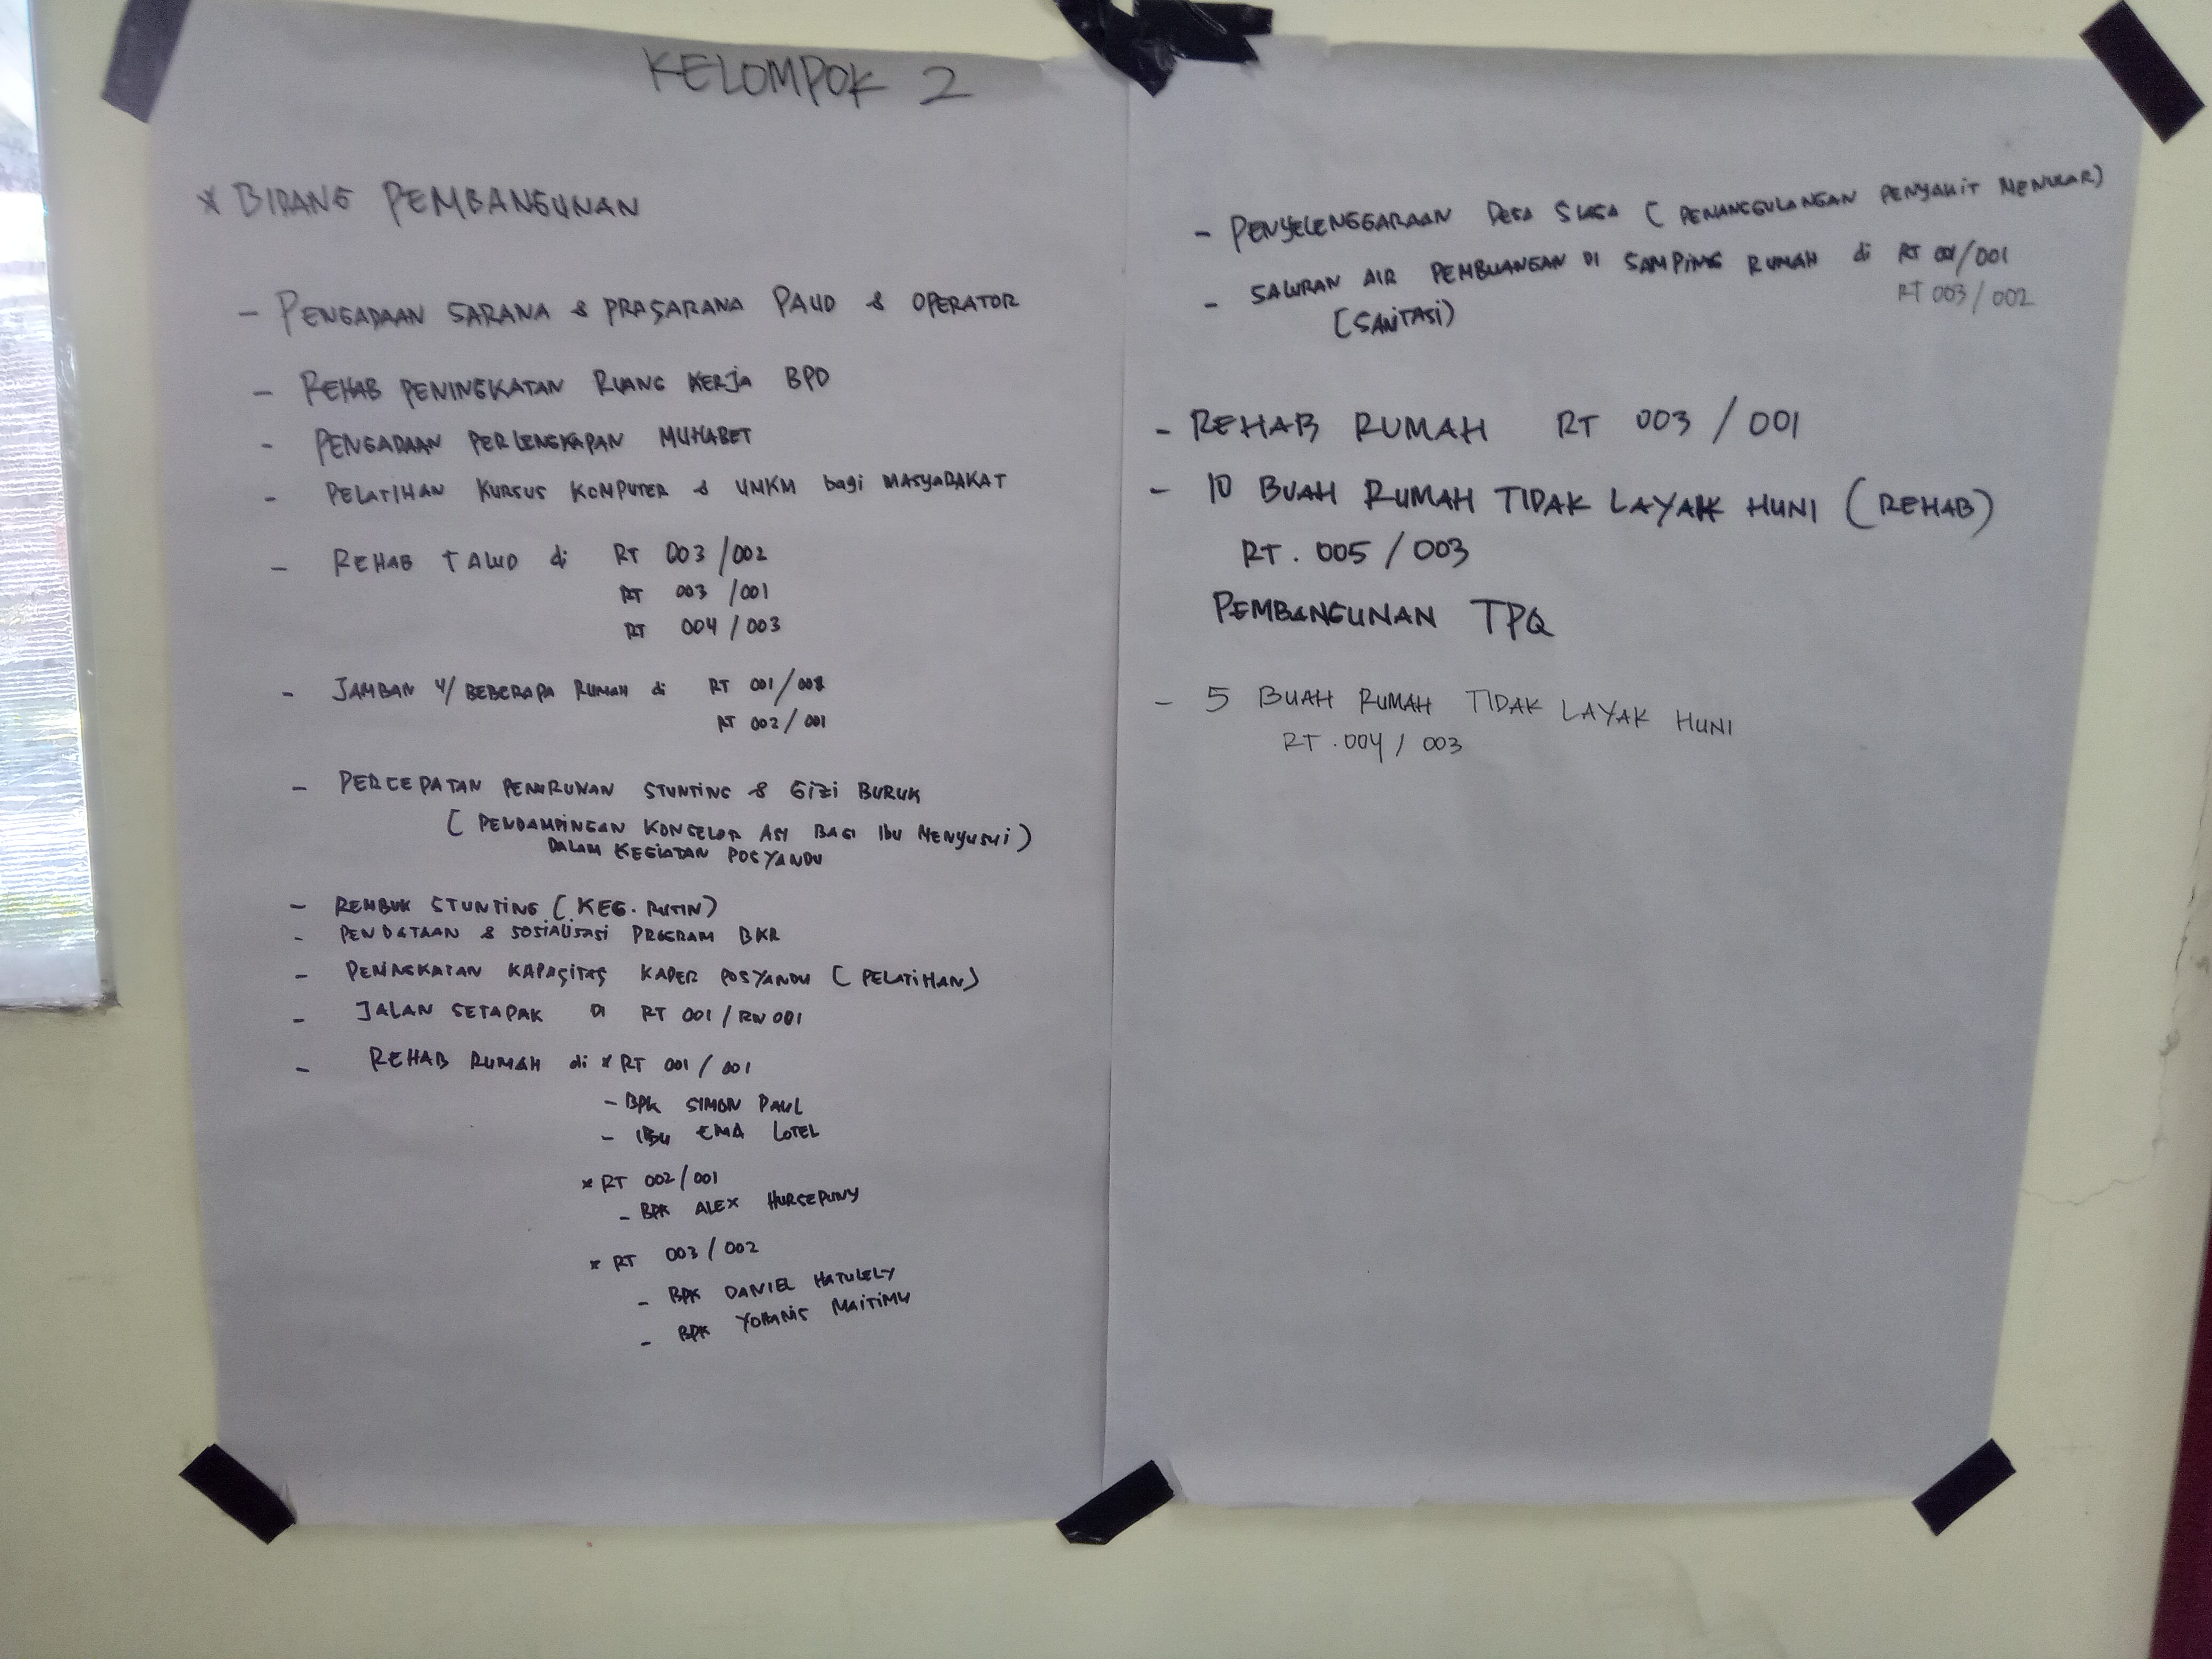 KELOMPOK 2
* BIDANG PEMBANGUNAN
- PENGADAAN SARANA & PRASARANA PAUD & OPERATOR
- REHAB PENINGKATAN RUANG KERJA BPD
- PENGADAAN PERLENGKAPAN MUHABET
- PELATIHAN KURSUS KOMPUTER & UMKM bagi MASYARAKAT
- REHAB TALUD di RT 003/002
RT 003/001
RT 004/003
- JAMBAN U/ BEBERAPA RUMAH di RT 001/
RT 002/001
- PERCEPATAN PENURUNAN STUNTING & GIZI BURUK
( PENDAMPINGAN KONSELOR ASI BAGI IBU MENYUSUI )
DALAM KEGIATAN POSYANDU
- REMBUK STUNTING ( KEG. RUTIN )
- PENDATAAN & SOSIALISASI PROGRAM BKR
- PENINGKATAN KAPASITAS KADER POSYANDU ( PELATIHAN )
- JALAN SETAPAK DI RT 001/RW 001
- REHAB RUMAH di * RT 001/001
- BPK SIMON PAUL
- IBU EMA LOTEL
* RT 002/001
- BPK ALEX HURSEPUNY
* RT 003/002
- BPK DANIEL HATULELY
- BPK YOHANIS MAITIMU
- PENYELENGGARAAN DESA SIAGA ( PENANGGULANGAN PENYAKIT MENULAR )
- SALURAN AIR PEMBUANGAN DI SAMPING RUMAH di RT 001/001
RT 003/002
( SANITASI )
- REHAB RUMAH RT 003/001
- 10 BUAH RUMAH TIDAK LAYAK HUNI ( REHAB )
RT. 005/003
PEMBANGUNAN TPQ
- 5 BUAH RUMAH TIDAK LAYAK HUNI
RT. 004/003